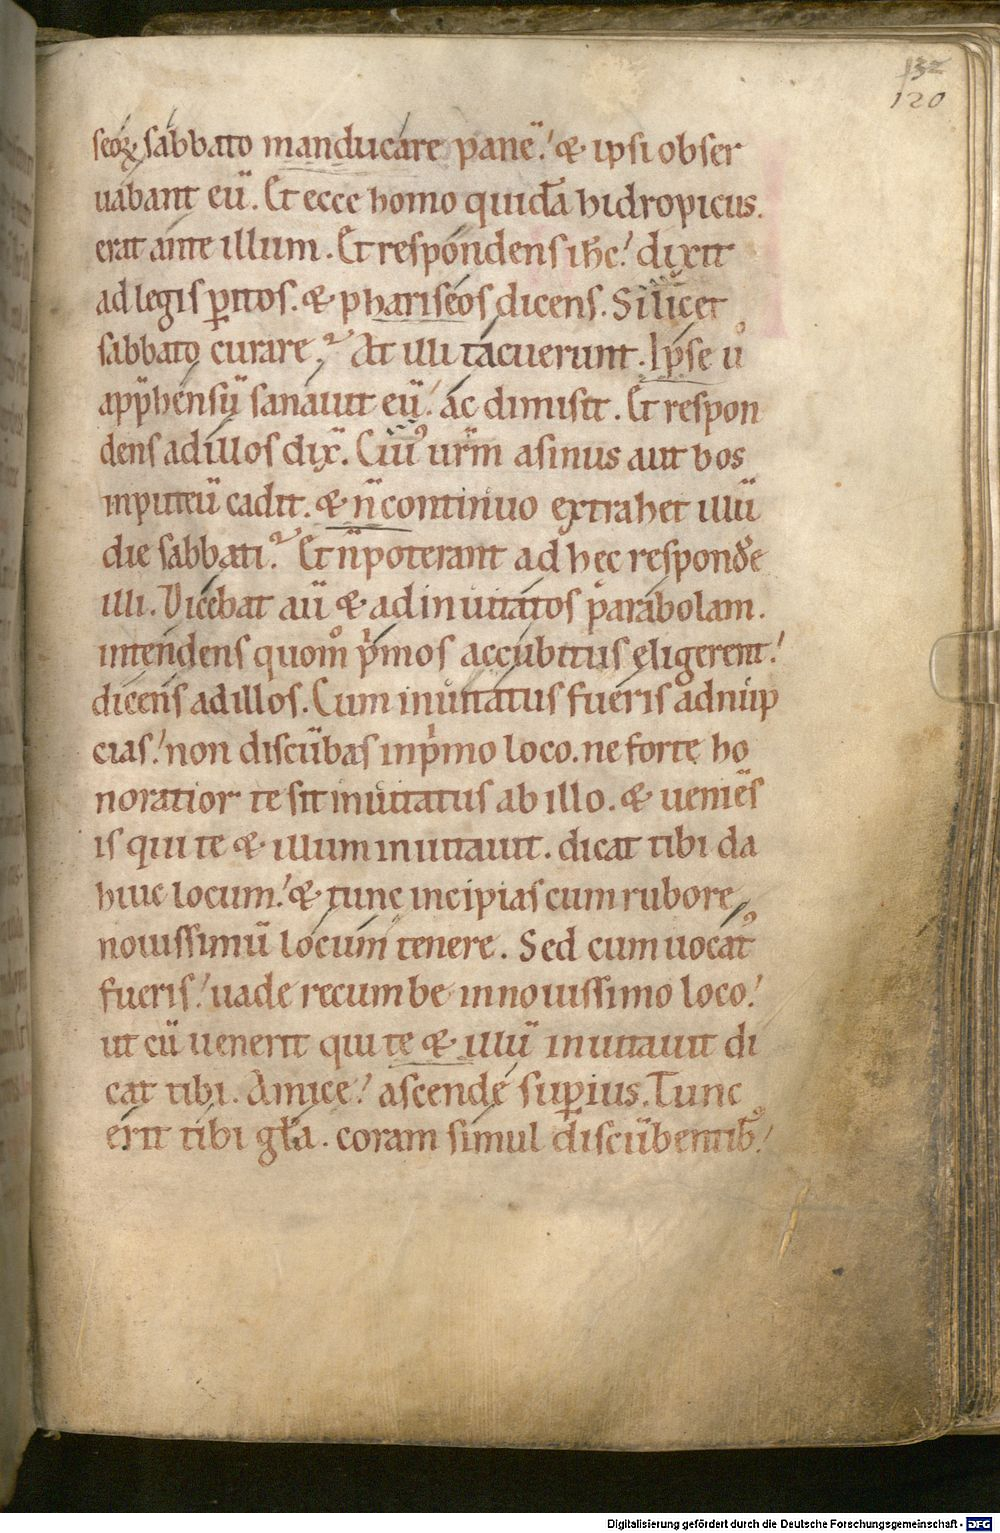 132
120
seoꝝ sabbato manducare panē. & ipsi obser
uabant eū. Et ecce homo quidā hidropicus.
erat ante illum. Et respondens ihc̄. dixit
ad legis ꝑitos. & phariseos dicens. Si licet
sabbato curare? At illi tacuerunt. Ipse u͛o
app̄hensū sanauit eū. ac dimisit. Et respon
dens ad illos dix̄. Cuiꝰ ur̄m asinus aut bos
inputeū cadit. & n̄ continuo extrahet illū
die sabbati? Et n̄ poterant ad hec respond̄e
illi. Dicebat aū & ad inuitatos parabolam.
intendens quom̊ pͥmos accubitus eligerent.
dicens ad illos. Cum inuitatus fueris adnup
cias. non discūbas inpͥmo loco. ne forte ho
noratior te sit inuitatus ab illo. & ueniēs
is qui te & illum inuitauit. dicat tibi da
huic locum. & tunc incipias cum rubore
nouissimū locum tenere. Sed cum uocatꝰ
fueris. uade recumbe innouissimo loco.
ut cū uenerit qui te & illū inuitauit di
cat tibi. Amice. ascende suꝑius. Tunc
erit tibi gl̄a. coram simul discūbentibꝰ.
Digitalisierung gefördert durch die Deutsche Forschungsgemeinschaft - DFG